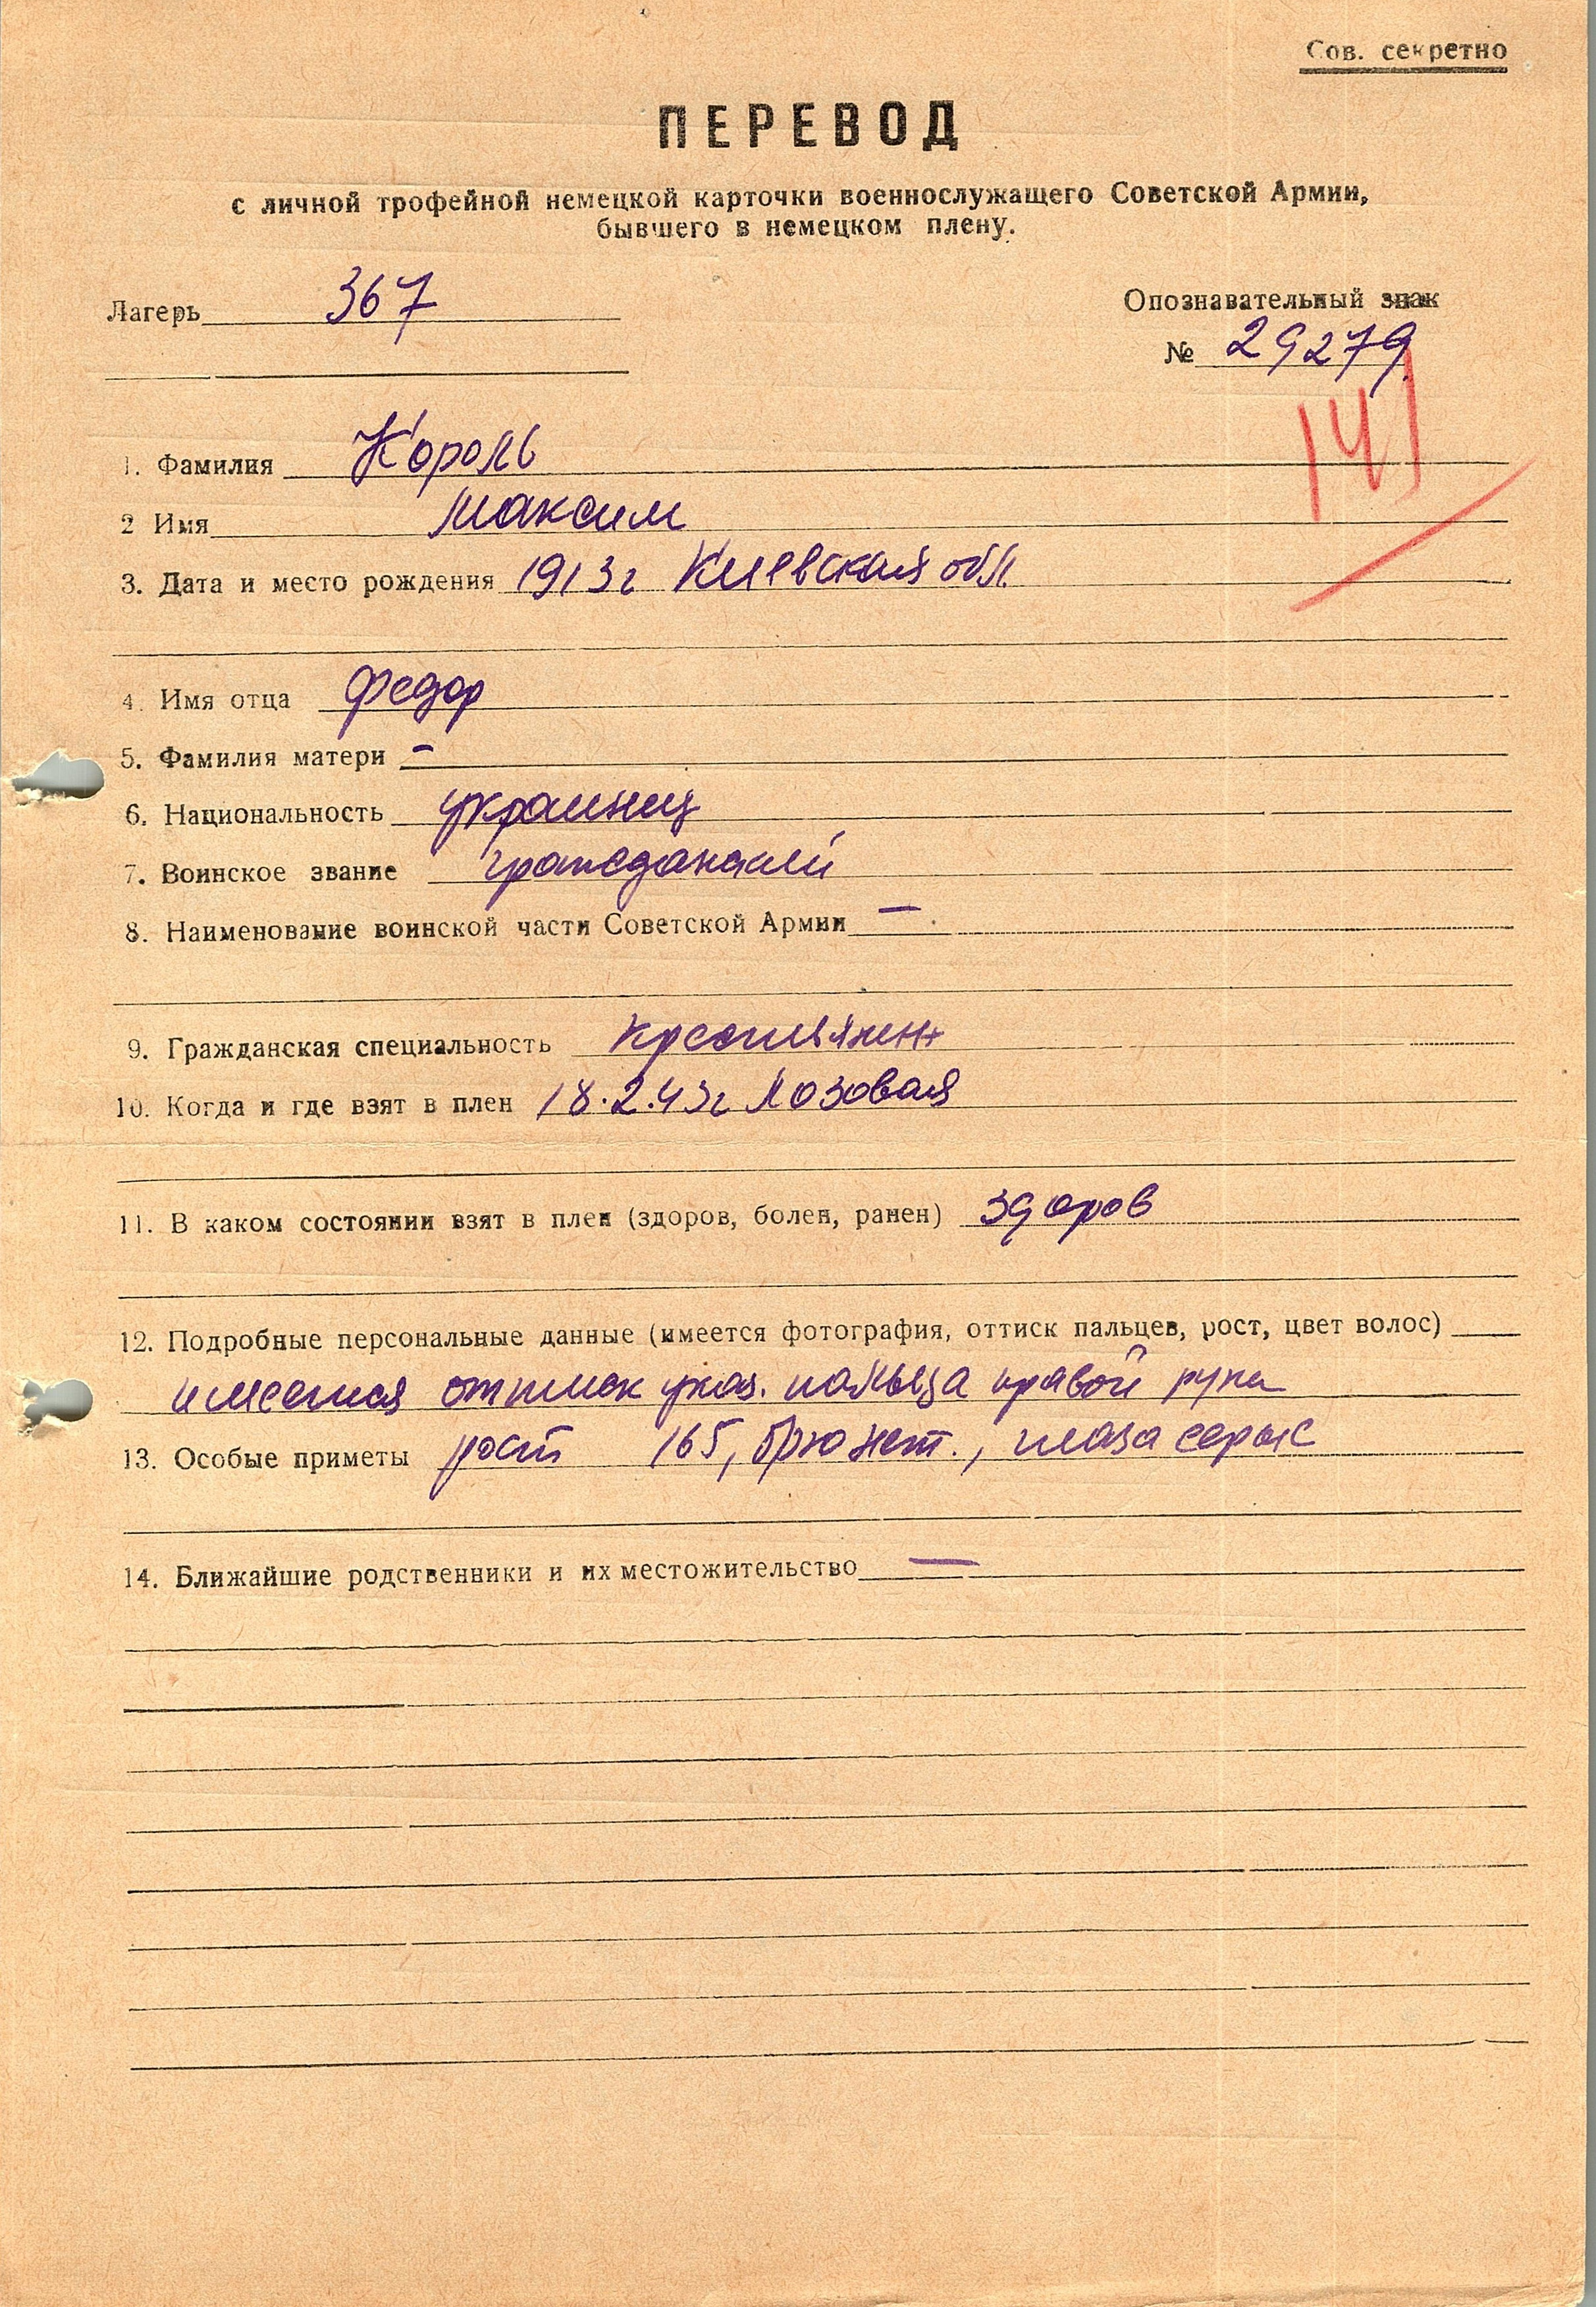 Сов. секретно
ПЕРЕВОД
с личной трофейной немецкой карточки военнослужащего Советской Армии,
бывшего в немецком плену.
Лагерь 367
Опознавательный знак
№ 29279
141
1. Фамилия Король
2 Имя Максим
3. Дата и место рождения 1913г Киевская обл
4. Имя отца Федор
5. Фамилия матери –
6. Национальность украинец
7. Воинское звание гражданский
8. Наименование воинской части Советской Армии —
9. Гражданская специальность крестьянин
10. Когда и где взят в плен 18.2.43г Лозовая
11. В каком состоянии взят в плен (здоров, болен, ранен) здоров
12. Подробные персональные данные (имеется фотография, оттиск пальцев, рост, цвет волос)
имеется оттиск указ. пальца правой руки
13. Особые приметы рост 165, брюнет., глаза серые
14. Ближайшие родственники и их местожительство —